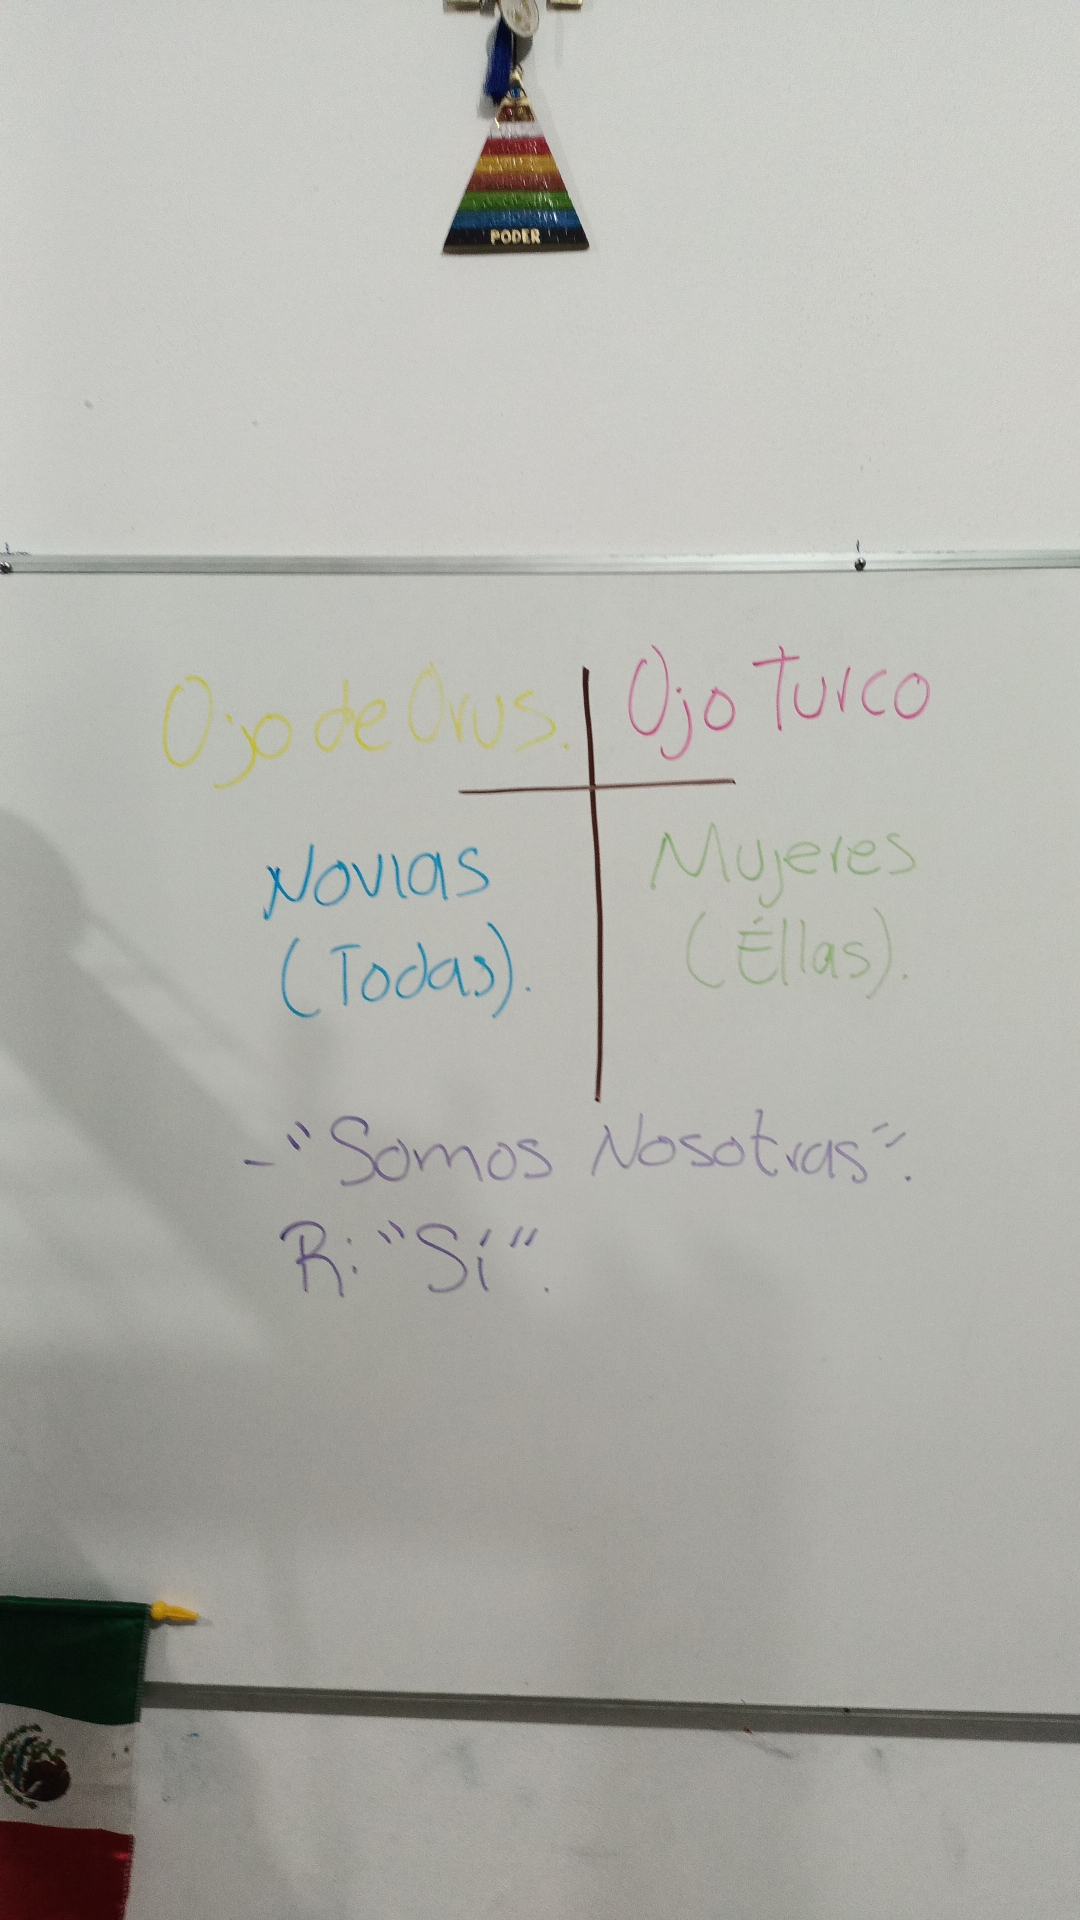 PODER
Ojo de Orus.
Ojo Turco
Novias
(Todas).
Mujeres
(Éllas).
-"Somos Nosotras".
R: "Sí".